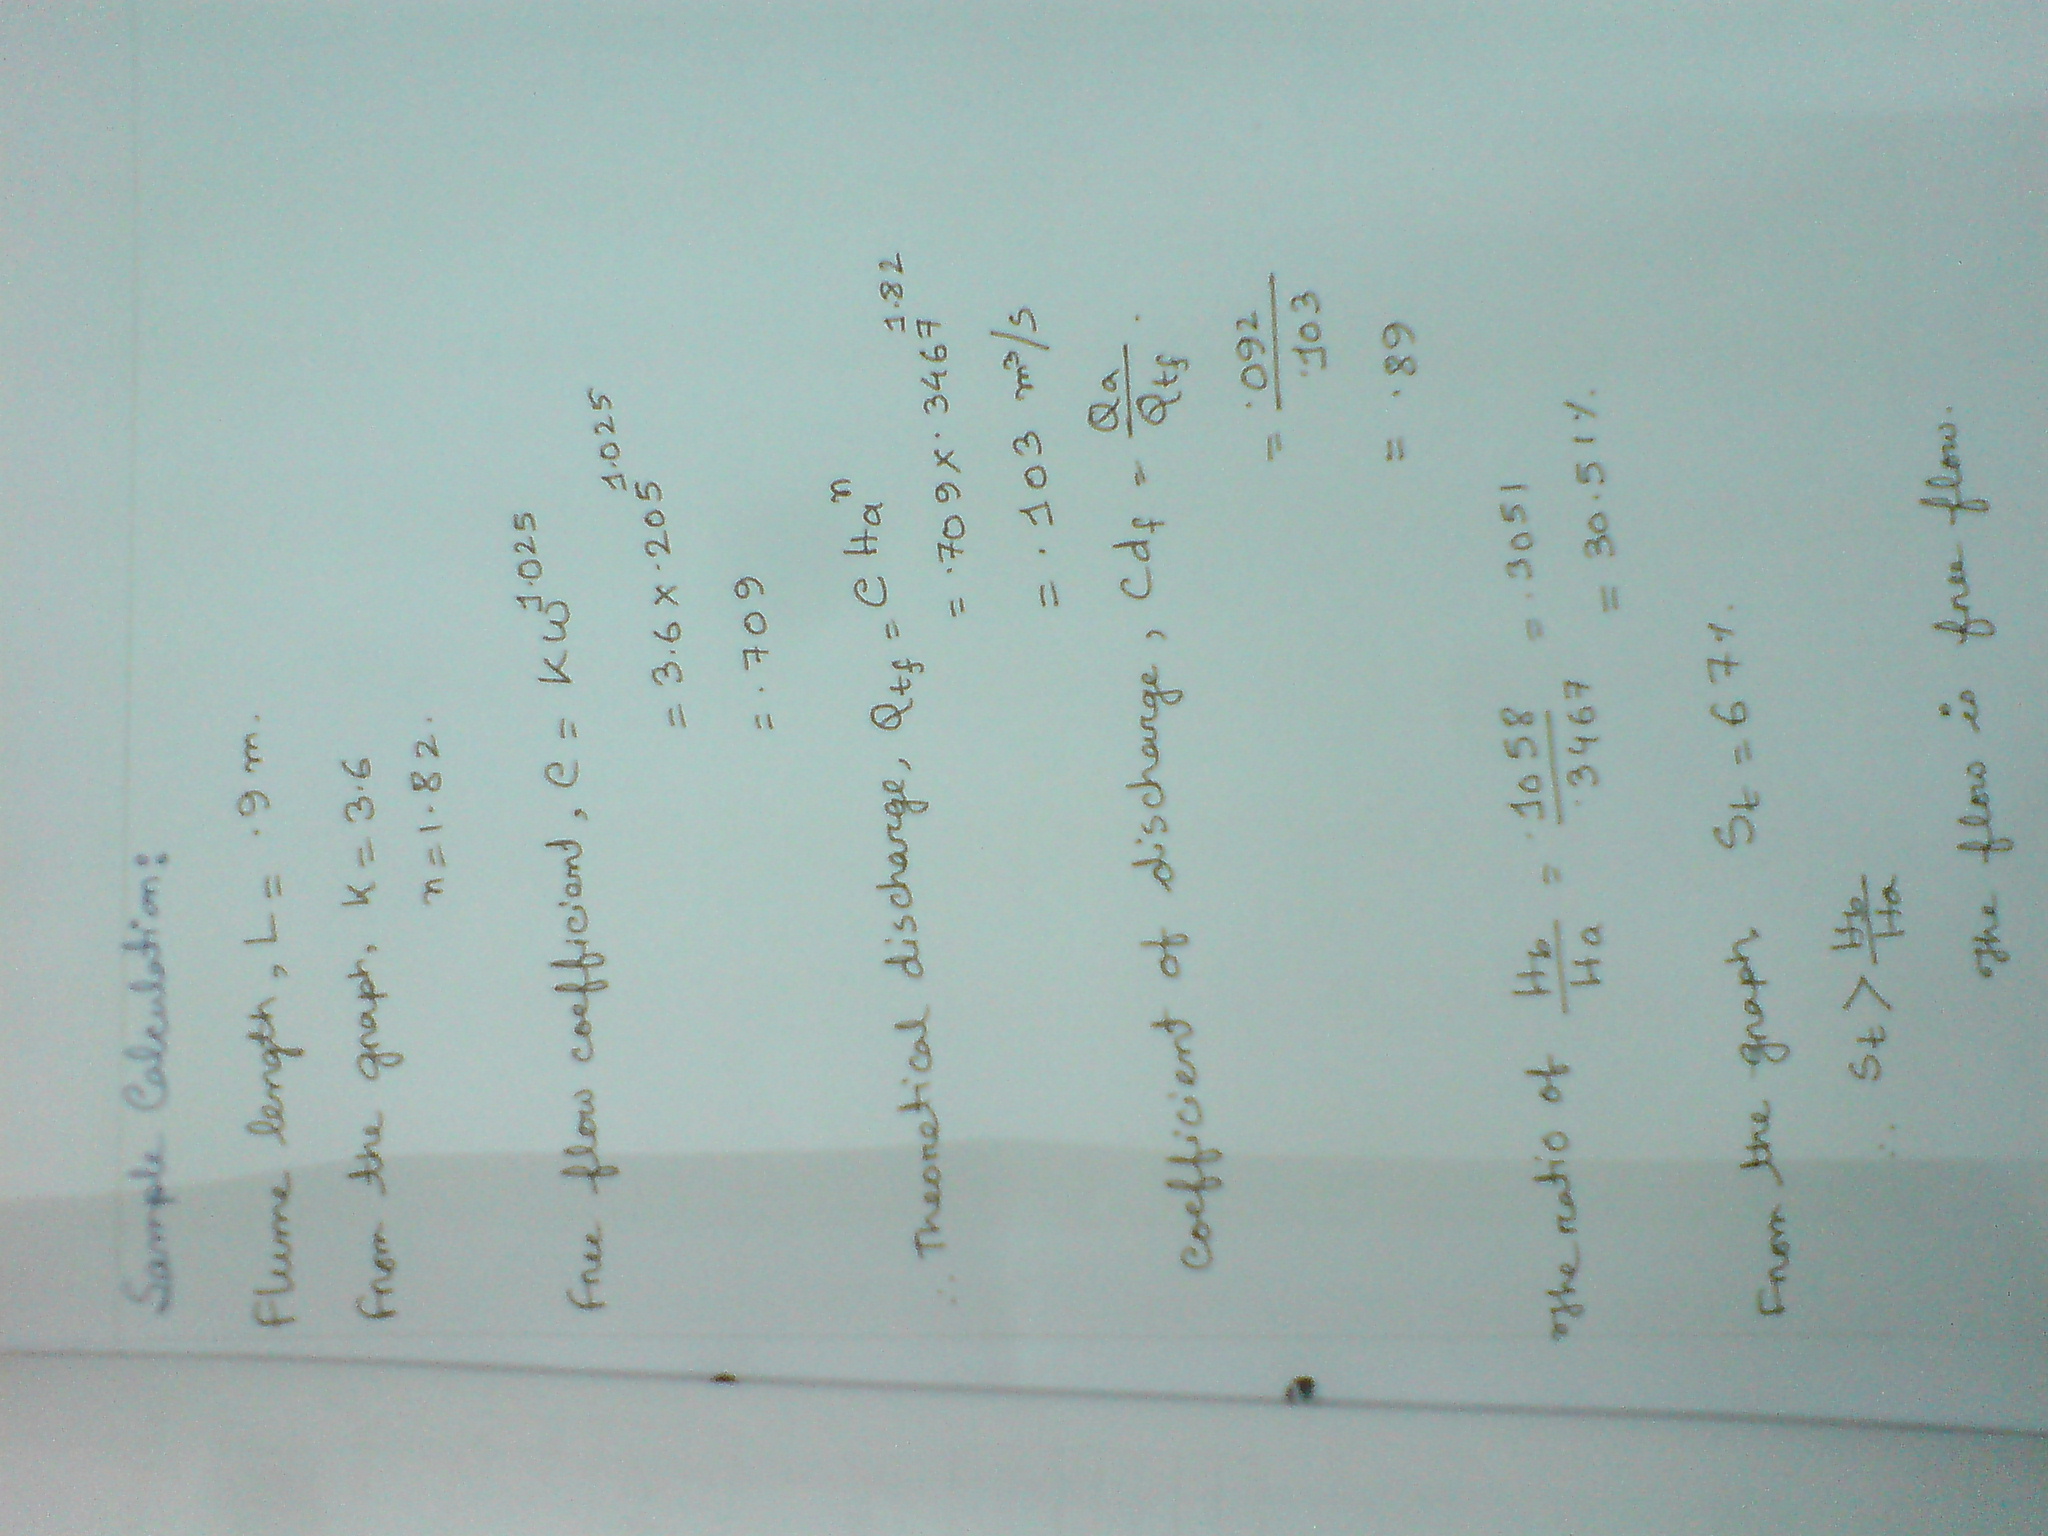 Sample Calculation:
Flume length, L = .9 m.
From the graph, K = 3.6
n = 1.82.
Free flow coefficient, C = KW^1.025
= 3.6 x .205^1.025
= .709
∴ Theoretical discharge, Qtf = C Ha^n
= .709 x .3467^1.82
= .103 m³/s
Coefficient of discharge, Cdf = Qa/Qtf.
= .092/.103
= .89
The ratio of Hb/Ha = .1058/.3467 = .3051
= 30.51%
From the graph St = 67%.
∴ St > Hb/Ha
The flow is free flow.